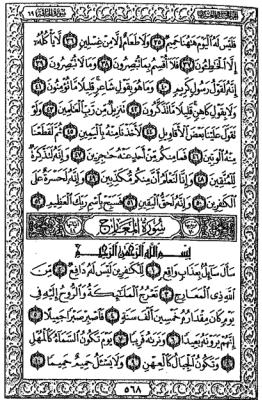 فَلَيْسَ لَهُ ٱلْيَوْمَ هَٰهُنَا حَمِيمٌ ٣٥ وَلَا طَعَامٌ إِلَّا مِنْ غِسْلِينٍ ٣٦ لَّا يَأْكُلُهُۥٓ
إِلَّا ٱلْخَٰطِـُٔونَ ٣٧ فَلَآ أُقْسِمُ بِمَا تُبْصِرُونَ ٣٨ وَمَا لَا تُبْصِرُونَ ٣٩
إِنَّهُۥ لَقَوْلُ رَسُولٍ كَرِيمٍ ٤٠ وَمَا هُوَ بِقَوْلِ شَاعِرٍ قَلِيلًا مَّا تُؤْمِنُونَ ٤١
وَلَا بِقَوْلِ كَاهِنٍ قَلِيلًا مَّا تَذَكَّرُونَ ٤٢ تَنزِيلٌ مِّن رَّبِّ ٱلْعَٰلَمِينَ ٤٣ وَلَوْ
تَقَوَّلَ عَلَيْنَا بَعْضَ ٱلْأَقَاوِيلِ ٤٤ لَأَخَذْنَا مِنْهُ بِٱلْيَمِينِ ٤٥ ثُمَّ لَقَطَعْنَا
مِنْهُ ٱلْوَتِينَ ٤٦ فَمَا مِنكُم مِّنْ أَحَدٍ عَنْهُ حَٰجِزِينَ ٤٧ وَإِنَّهُۥ لَتَذْكِرَةٌ
لِّلْمُتَّقِينَ ٤٨ وَإِنَّا لَنَعْلَمُ أَنَّ مِنكُم مُّكَذِّبِينَ ٤٩ وَإِنَّهُۥ لَحَسْرَةٌ عَلَى
ٱلْكَٰفِرِينَ ٥٠ وَإِنَّهُۥ لَحَقُّ ٱلْيَقِينِ ٥١ فَسَبِّحْ بِٱسْمِ رَبِّكَ ٱلْعَظِيمِ ٥٢
سُورَةُ المَعَارِجِ
بِسْمِ ٱللَّهِ ٱلرَّحْمَٰنِ ٱلرَّحِيمِ
سَأَلَ سَآئِلٌۢ بِعَذَابٍ وَاقِعٍ ١ لِّلْكَٰفِرِينَ لَيْسَ لَهُۥ دَافِعٌ ٢ مِّنَ
ٱللَّهِ ذِي ٱلْمَعَارِجِ ٣ تَعْرُجُ ٱلْمَلَٰٓئِكَةُ وَٱلرُّوحُ إِلَيْهِ فِي
يَوْمٍ كَانَ مِقْدَارُهُۥ خَمْسِينَ أَلْفَ سَنَةٍ ٤ فَٱصْبِرْ صَبْرًا جَمِيلًا ٥
إِنَّهُمْ يَرَوْنَهُۥ بَعِيدًا ٦ وَنَرَىٰهُ قَرِيبًا ٧ يَوْمَ تَكُونُ ٱلسَّمَآءُ كَٱلْمُهْلِ
٨ وَتَكُونُ ٱلْجِبَالُ كَٱلْعِهْنِ ٩ وَلَا يَسْـَٔلُ حَمِيمٌ حَمِيمًا ١٠
٥٦٨